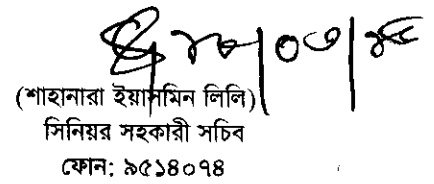 (শাহানারা ইয়াসমিন লিলি)
সিনিয়র সহকারী সচিব
ফোন; ৯৫১৪০৭৪